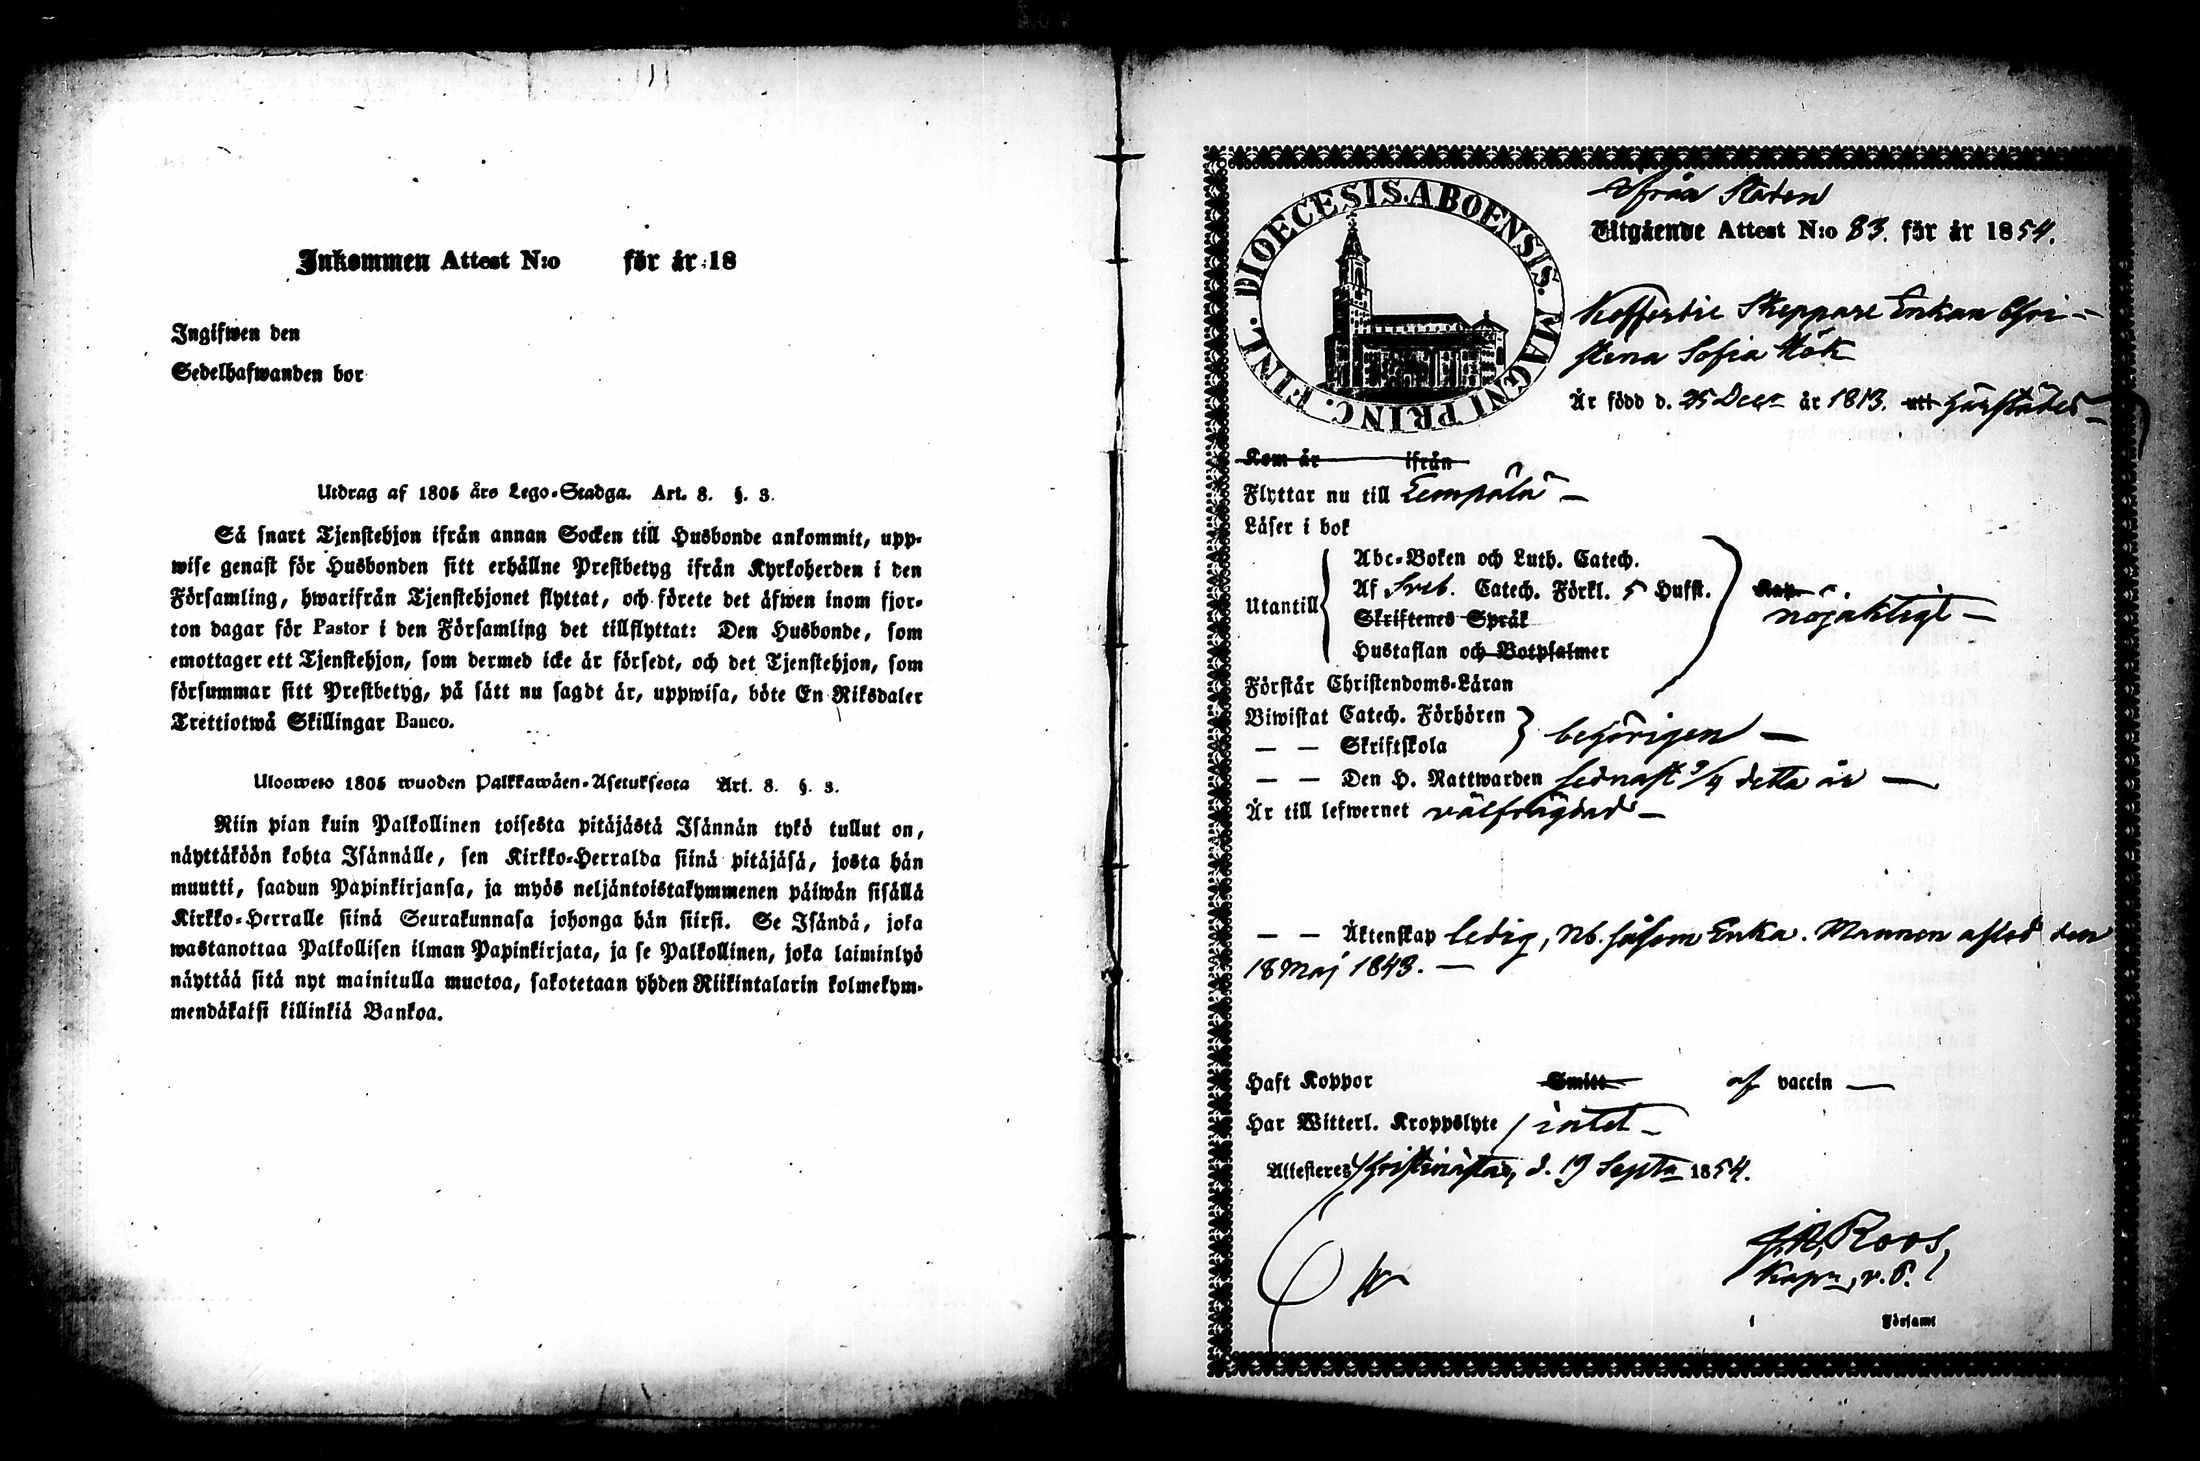 Inkommen Attest N:o för år 18
Ingifwen den
Sedelhafwanden bor
Utdrag af 1805 års Lego-Stadga. Art. 8. §. 3.
Så snart Tjenstehjon ifrån annan Socken till Husbonde ankommit, upp-
wise genast för Husbonden sitt erhållne Prestbetyg ifrån Kyrkoherden i den
Församling, hwarifrån Tjenstehjonet flyttat, och förete det äfwen inom fjor-
ton dagar för Pastor i den Församling det tillflyttat: Den Husbonde, som
emottager ett Tjenstehjon, som dermed icke är försedt, och det Tjenstehjon, som
försummar sitt Prestbetyg, på sätt nu sagdt är, uppwisa, böte En Riksdaler
Trettiotwå Skillingar Banco.
Ulosweto 1805 wuoden Palkkawäen-Asetuksesta Art. 8. §. 3.
Niin pian kuin Palkollinen toisesta pitäjästä Isännän tykö tullut on,
näyttäköön kohta Isännälle, sen Kirkko-Herralda siinä pitäjäsä, josta hän
muutti, saadun Papinkirjansa, ja myös neljäntoistakymmenen päiwän sisällä
Kirkko-Herralle siinä Seurakunnasa johonga hän siirsi. Se Isändä, joka
wastanottaa Palkollisen ilman Papinkirjata, ja se Palkollinen, joka laiminlyö
näyttää sitä nyt mainitulla muotoa, sakotetaan yhden Riikintalarin kolmekym-
mendäkaksi killinkiä Bankoa.
DIOECESIS. ABOENSIS. MAGNI PRINC. FINL.
ifrån Staden
Utgående Attest N:o 83. för år 1854.
Kofferdie Skeppare Enkan Chri-
stina Sofia Hök
Är född d. 25 Decr år 1813. uti härstädes
Kom år ifrån
Flyttar nu till Lempälä
Läser i bok
Utantill
Abc-Boken och Luth. Catech.
Af Sveb. Catech. Förkl. 5 Hufst.
Skriftenes Språk
Hustaflan och Botpsalmer
Kap.
nöjaktigt
Förstår Christendoms-Läran
Biwistat Catech. Förhören
— — Skriftskola
behörigen
— — Den H. Nattwarden sednast 9/4 detta år
Är till lefwernet välfrägdad
— — Äktenskap ledig, Nb. såsom Enka. Mannen afled den
18 Maj 1843.
Haft Koppor Smitt af vaccin
Har Witterl. Kroppslyte intet
Attesteres Christinæstad, d. 19 Septr 1854.
Roos,
Kapn, v. P.
i Församl